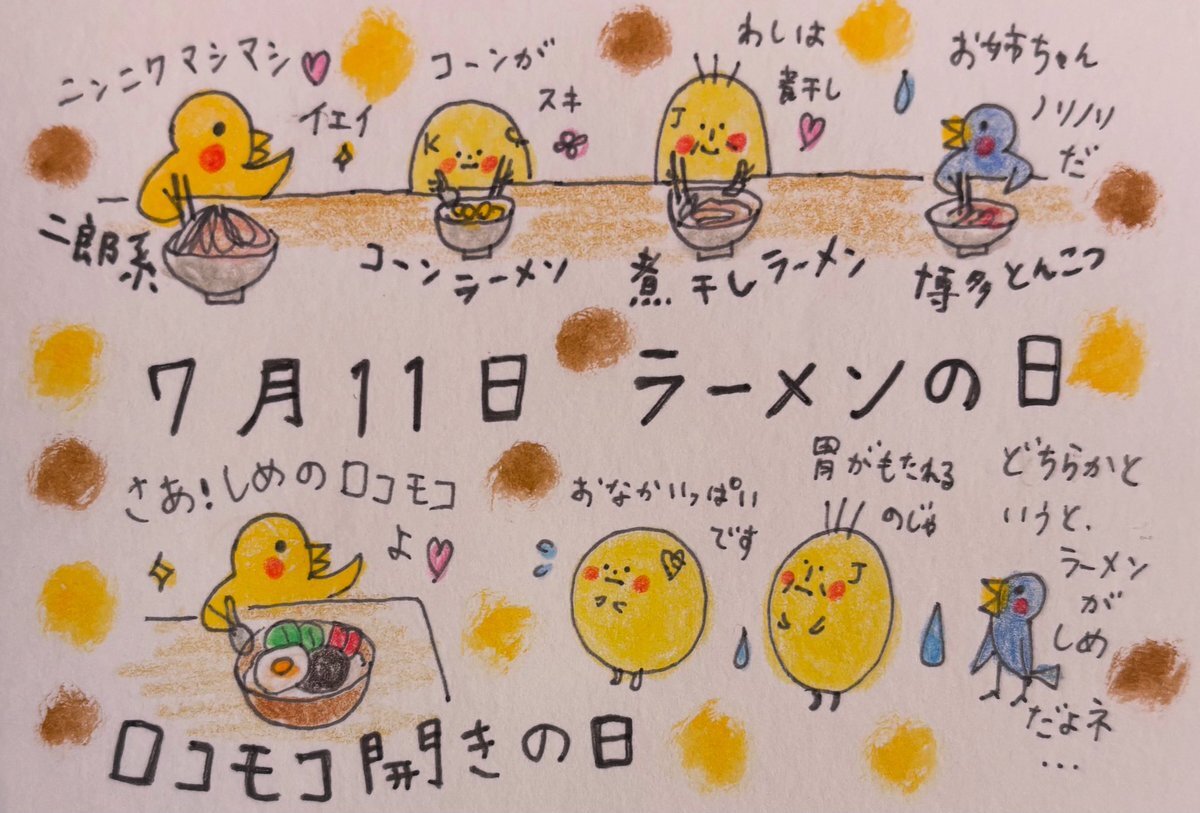 ニンニクマシマシ
イエイ
コーンが
スキ
わしは
煮干し
お姉ちゃん
ノリノリ
だ
K
J
二郎系
コーン
ラーメン
煮干しラーメン
博多とんこつ
7月11日 ラーメンの日
さあ！しめのロコモコ
よ
おなかいっぱい
です
胃がもたれる
のじゃ
J
どちらかと
いうと、
ラーメン
が
しめ
だよネ
...
ロコモコ開きの日